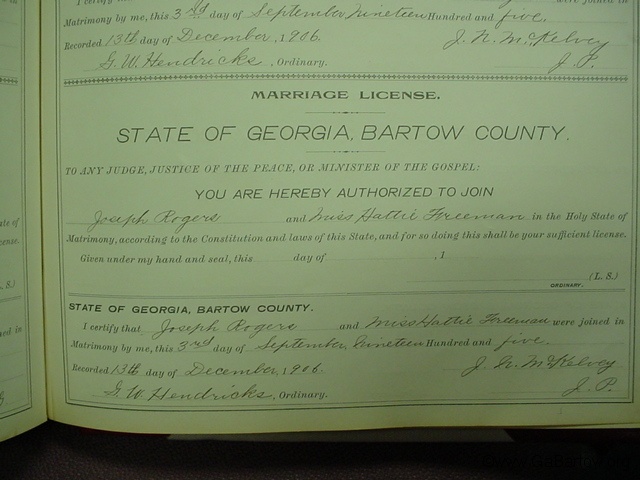 Matrimony by me, this 3rd day of September Nineteen Hundred and five.
Recorded 13th day of December, 1906. J. N. McKelvey
G. W. Hendricks, Ordinary. J. P.
MARRIAGE LICENSE.
STATE OF GEORGIA, BARTOW COUNTY.
TO ANY JUDGE, JUSTICE OF THE PEACE, OR MINISTER OF THE GOSPEL:
YOU ARE HEREBY AUTHORIZED TO JOIN
Joseph Rogers and Miss Hattie Freeman in the Holy State of
Matrimony, according to the Constitution and laws of this State, and for so doing this shall be your sufficient license.
Given under my hand and seal, this day of , 1
(L. S.)
ORDINARY.
STATE OF GEORGIA, BARTOW COUNTY.
I certify that Joseph Rogers and Miss Hattie Freeman were joined in
Matrimony by me, this 3rd day of September, Nineteen Hundred and five.
Recorded 13th day of December, 1906. J. N. McKelvey
G. W. Hendricks, Ordinary. J. P.